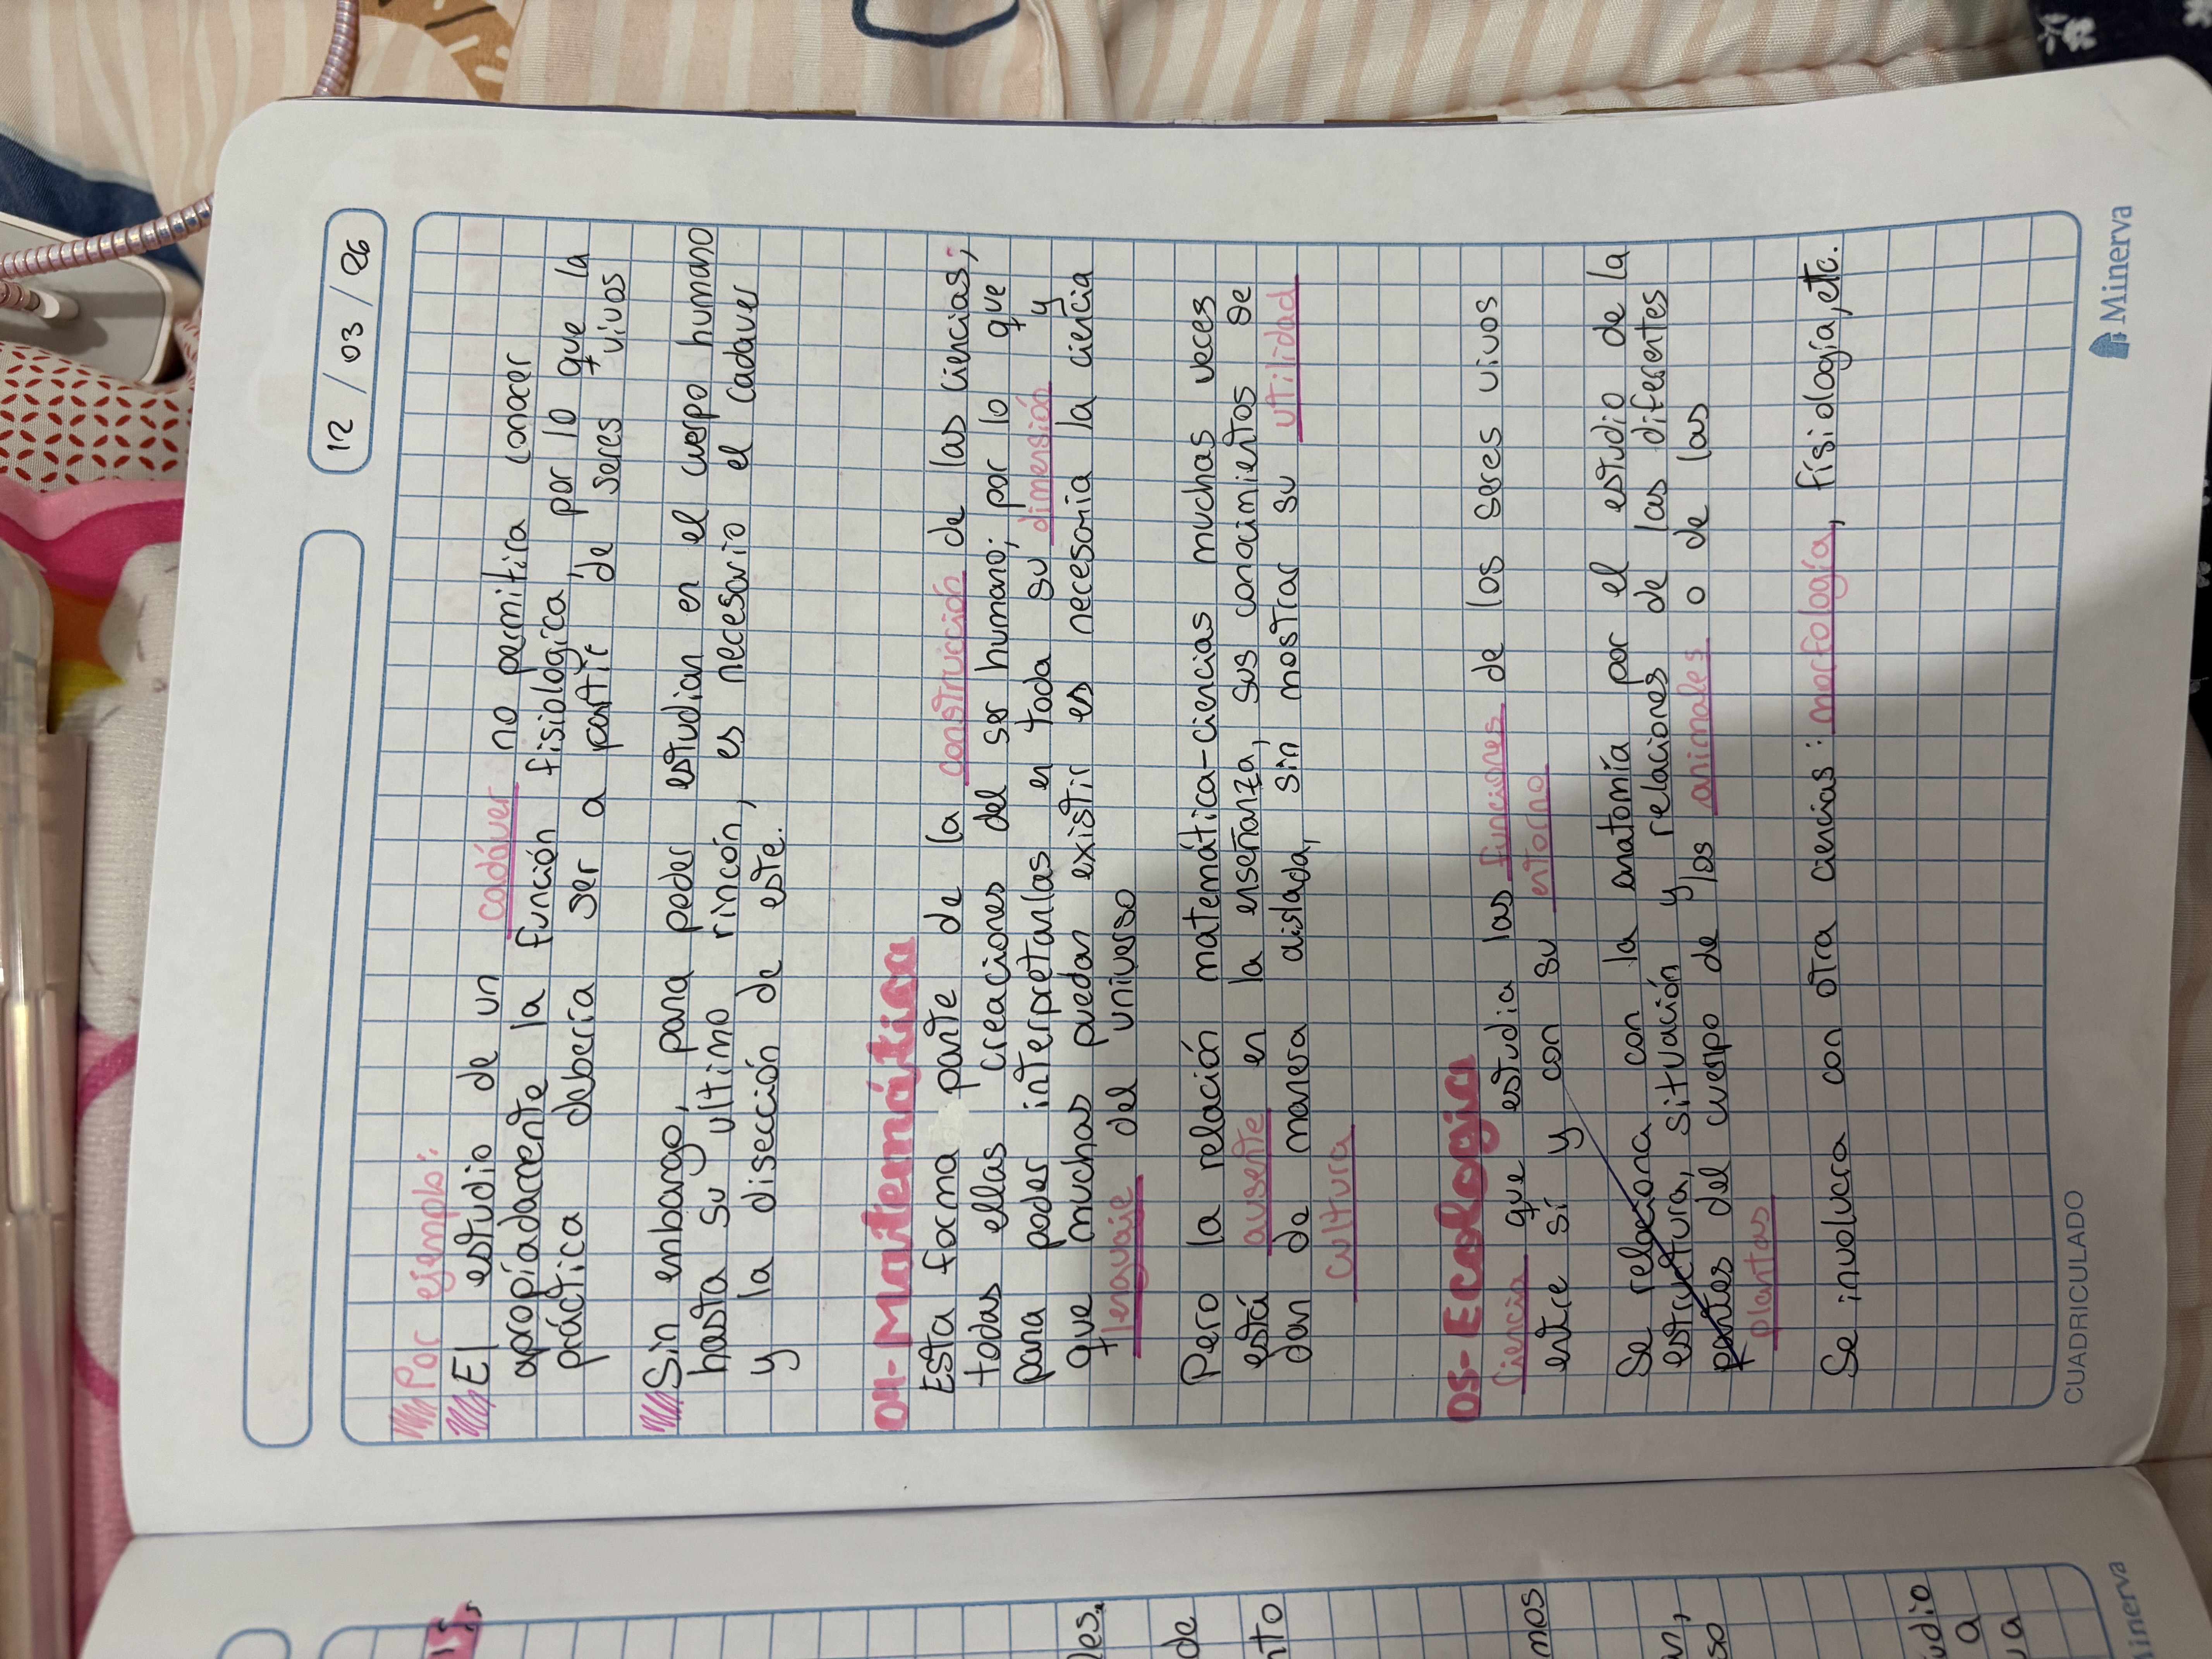 12 / 03 / 26
Por ejemplo:
El estudio de un cadáver no permitira conocer
apropíadamente la función fisiologica, por lo que la
práctica debería ser a partir de seres vivos
Sin embargo, para poder estudiar en el cuerpo humano
hasta su ultimo rincón, es necesario el cadaver
y la disección de este.
04- Matemática
Esta forma parte de la construcción de las ciencias,
todas ellas creaciones del ser humano; por lo que
para poder interpretarlas en toda su dimensión y
que muchas puedan existir es necesaria la ciencia
lenguaje del universo
Pero la relación matemática-ciencias muchas veces
está ausente en la enseñanza, sus conocimientos se
dan de manera aislada, sin mostrar su utilidad
cultura
05- Ecología
Ciencia que estudia las funciones de los seres vivos
entre sí y con su entorno
Se relaciona con la anatomía por el estudio de la
estructura, situación y relaciones de las diferentes
partes del cuerpo de los animales o de las
plantas
Se involucra con otra ciencias: morfología, físiología, etc.
CUADRICULADO
Minerva
les.
de
nto
mos
n,
so
udio
a
ua
Minerva